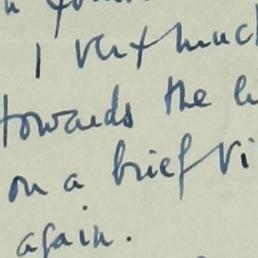 I very much
towards the
on a brief vi
again.